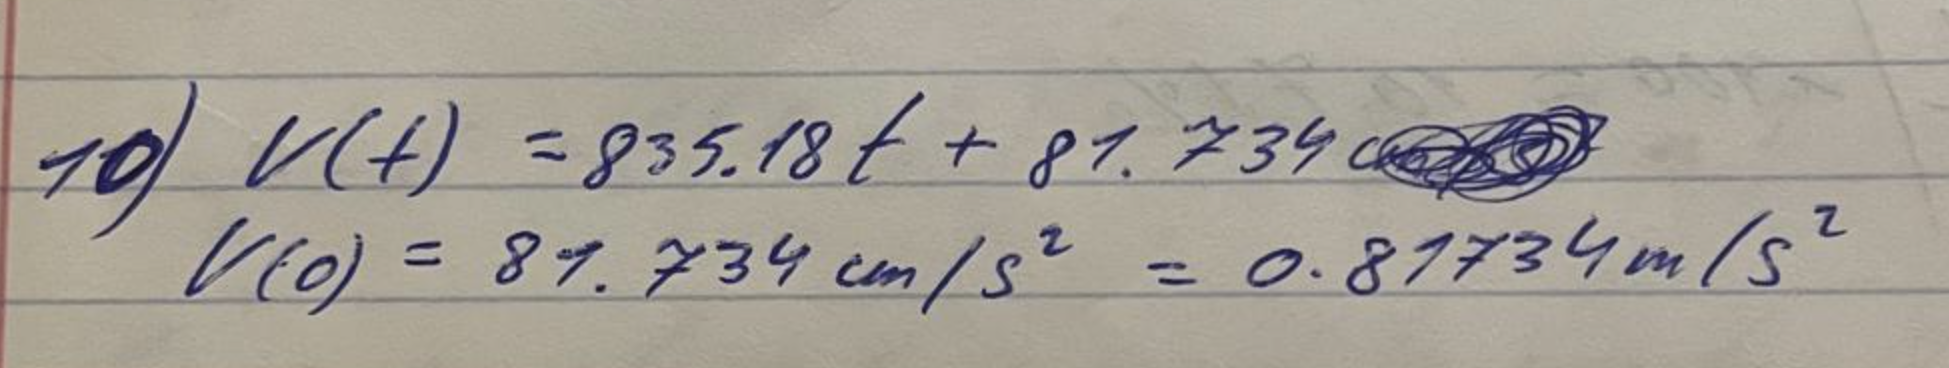 10) V(t) = 835.18t + 81.734
V(0) = 81.734 cm/s² = 0.81734 m/s²